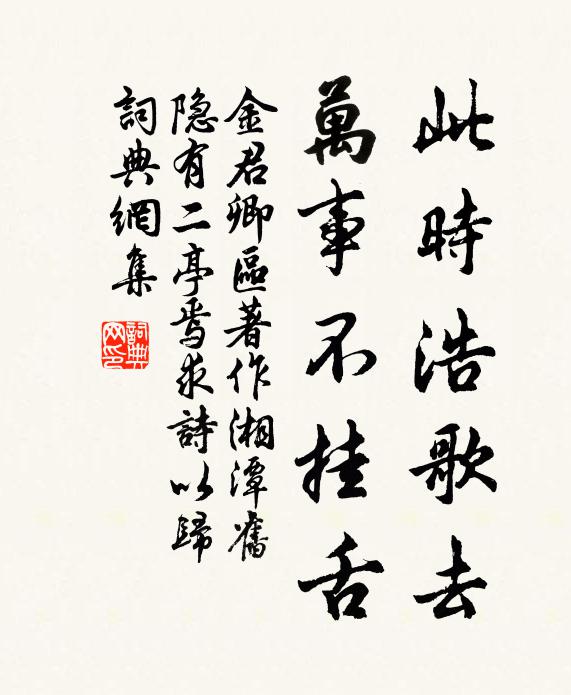 此時浩歌去
萬事不挂舌
金君卿區著作湘潭舊
隐有二亭焉求詩以歸
詞典網集
詞典網印